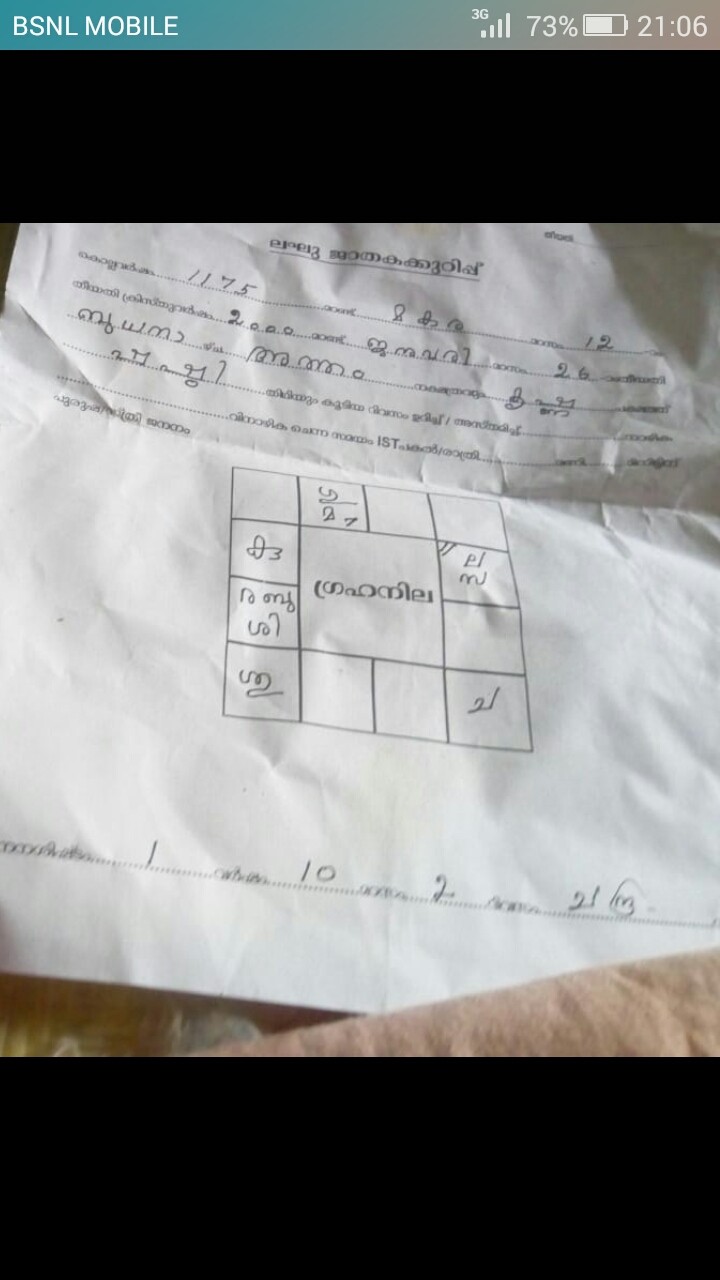 BSNL MOBILE 3G 73% 21:06
തീയതി
ലഘു ജാതകക്കുറിപ്പ്
കൊല്ലവർഷം 1175 മാണ്ട് മകര മാസം 12
തീയതി ക്രിസ്തുവർഷം 2000 മാണ്ട് ജനുവരി മാസം 26
ബുധനാ ഴ്ച അത്തം നക്ഷത്രവും കൃഷ്ണ
ഷഷ്ഠി തിഥിയും കൂടിയ ദിവസം ഉദിച്ച് / അസ്തമിച്ച് നാഴിക
വിനാഴിക ചെന്ന സമയം IST പകൽ/രാത്രി മണി മിനിട്ടിന്
പുരുഷ/സ്ത്രീ ജനനം
ഗു
മ
കു ല
സ
ഗ്രഹനില
ര ബു
ശി
ശു ച
1 വർഷം 10 മാസം 2 ദിവസം